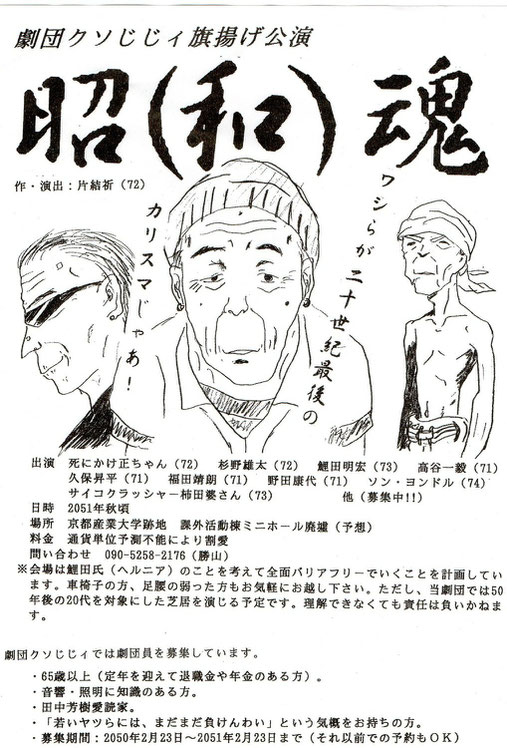 劇団クソじじィ旗揚げ公演
昭(和)魂
作・演出：片結祈（72）
ワシらが二十世紀最後の
カリスマじゃあ！
出演　死にかけ正ちゃん（72）　杉野雄太（72）　鯉田明宏（73）　高谷一毅（71）
久保昇平（71）　福田靖朗（71）　野田康代（71）　ソン・ヨンドル（74）
サイコクラッシャー柿田婆さん（73）　他（募集中!!）
日時　2051年秋頃
場所　京都産業大学跡地　課外活動棟ミニホール廃墟（予想）
料金　通貨単位予測不能により割愛
問い合わせ　090-5258-2176（勝山）
※会場は鯉田氏（ヘルニア）のことを考えて全面バリアフリーでいくことを計画してい
ます。車椅子の方、足腰の弱った方もお気軽にお越し下さい。ただし、当劇団では50
年後の20代を対象にした芝居を演じる予定です。理解できなくても責任は負いかねま
す。
劇団クソじじィでは劇団員を募集しています。
・65歳以上（定年を迎えて退職金や年金のある方）。
・音響・照明に知識のある方。
・田中芳樹愛読家。
・「若いヤツらには、まだまだ負けんわい」という気概をお持ちの方。
・募集期間：2050年2月23日～2051年2月23日まで（それ以前での予約もＯＫ）